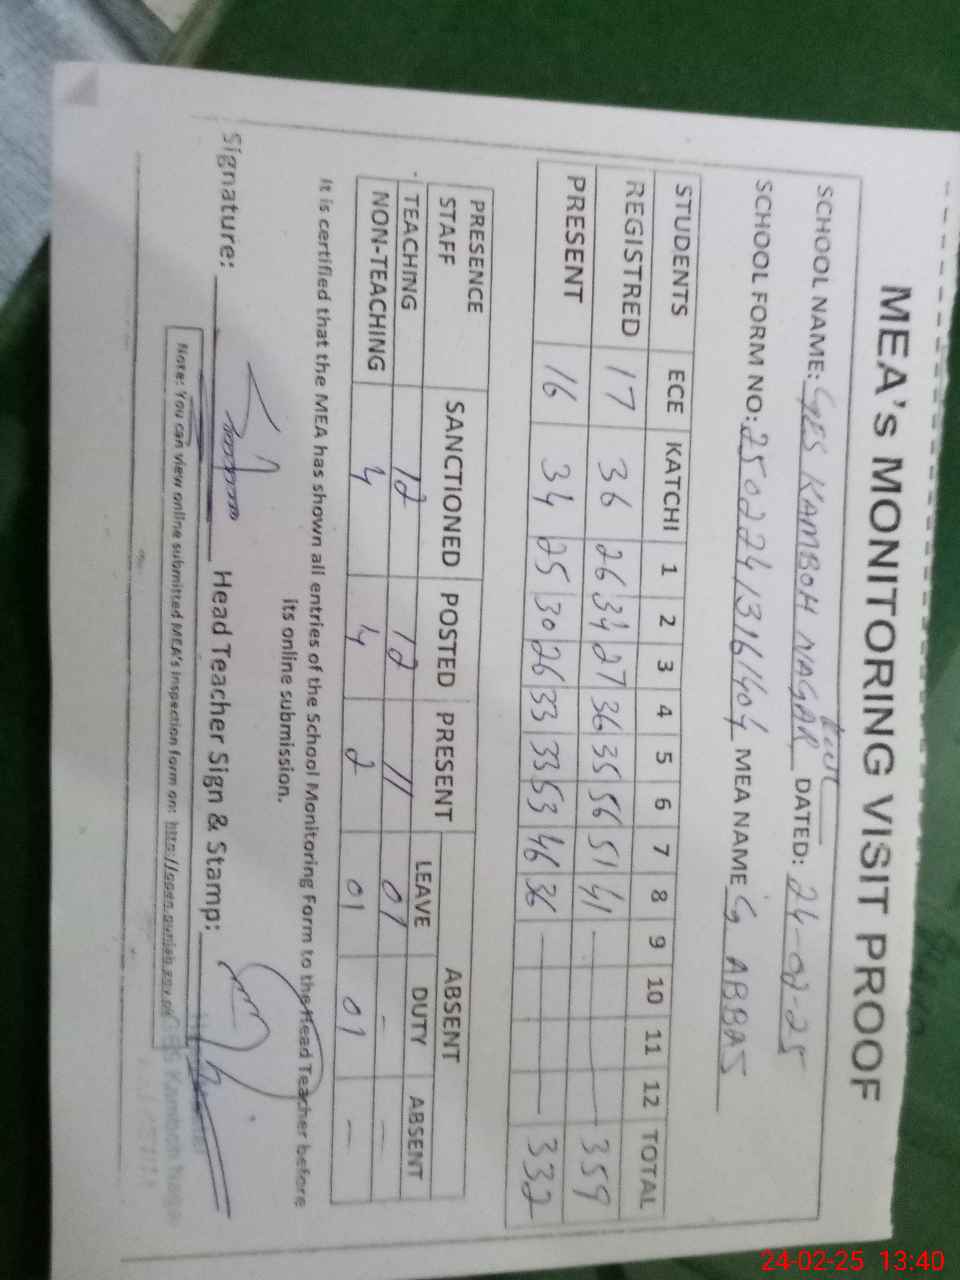 MEA's MONITORING VISIT PROOF
SCHOOL NAME: GES KAMBOH NAGAR DATED: 24-02-25
SCHOOL FORM NO: 25022413161404 MEA NAME G ABBAS
STUDENTS ECE KATCHI 1 2 3 4 5 6 7 8 9 10 11 12 TOTAL
REGISTRED 17 36 26 34 27 36 35 56 51 41 — — — — 359
PRESENT 16 34 25 30 26 33 33 53 46 36 — — — — 332
PRESENCE STAFF SANCTIONED POSTED PRESENT ABSENT
LEAVE DUTY ABSENT
TEACHING 12 12 11 01 - —
NON-TEACHING 4 4 2 01 01 —
It is certified that the MEA has shown all entries of the School Monitoring Form to the Head Teacher before
its online submission.
Signature: Head Teacher Sign & Stamp:
Note: You can view online submitted MEA's inspection form on: http://open.punjab.gov.pk
GES Kamboh Nagar
24-02-25 13:40